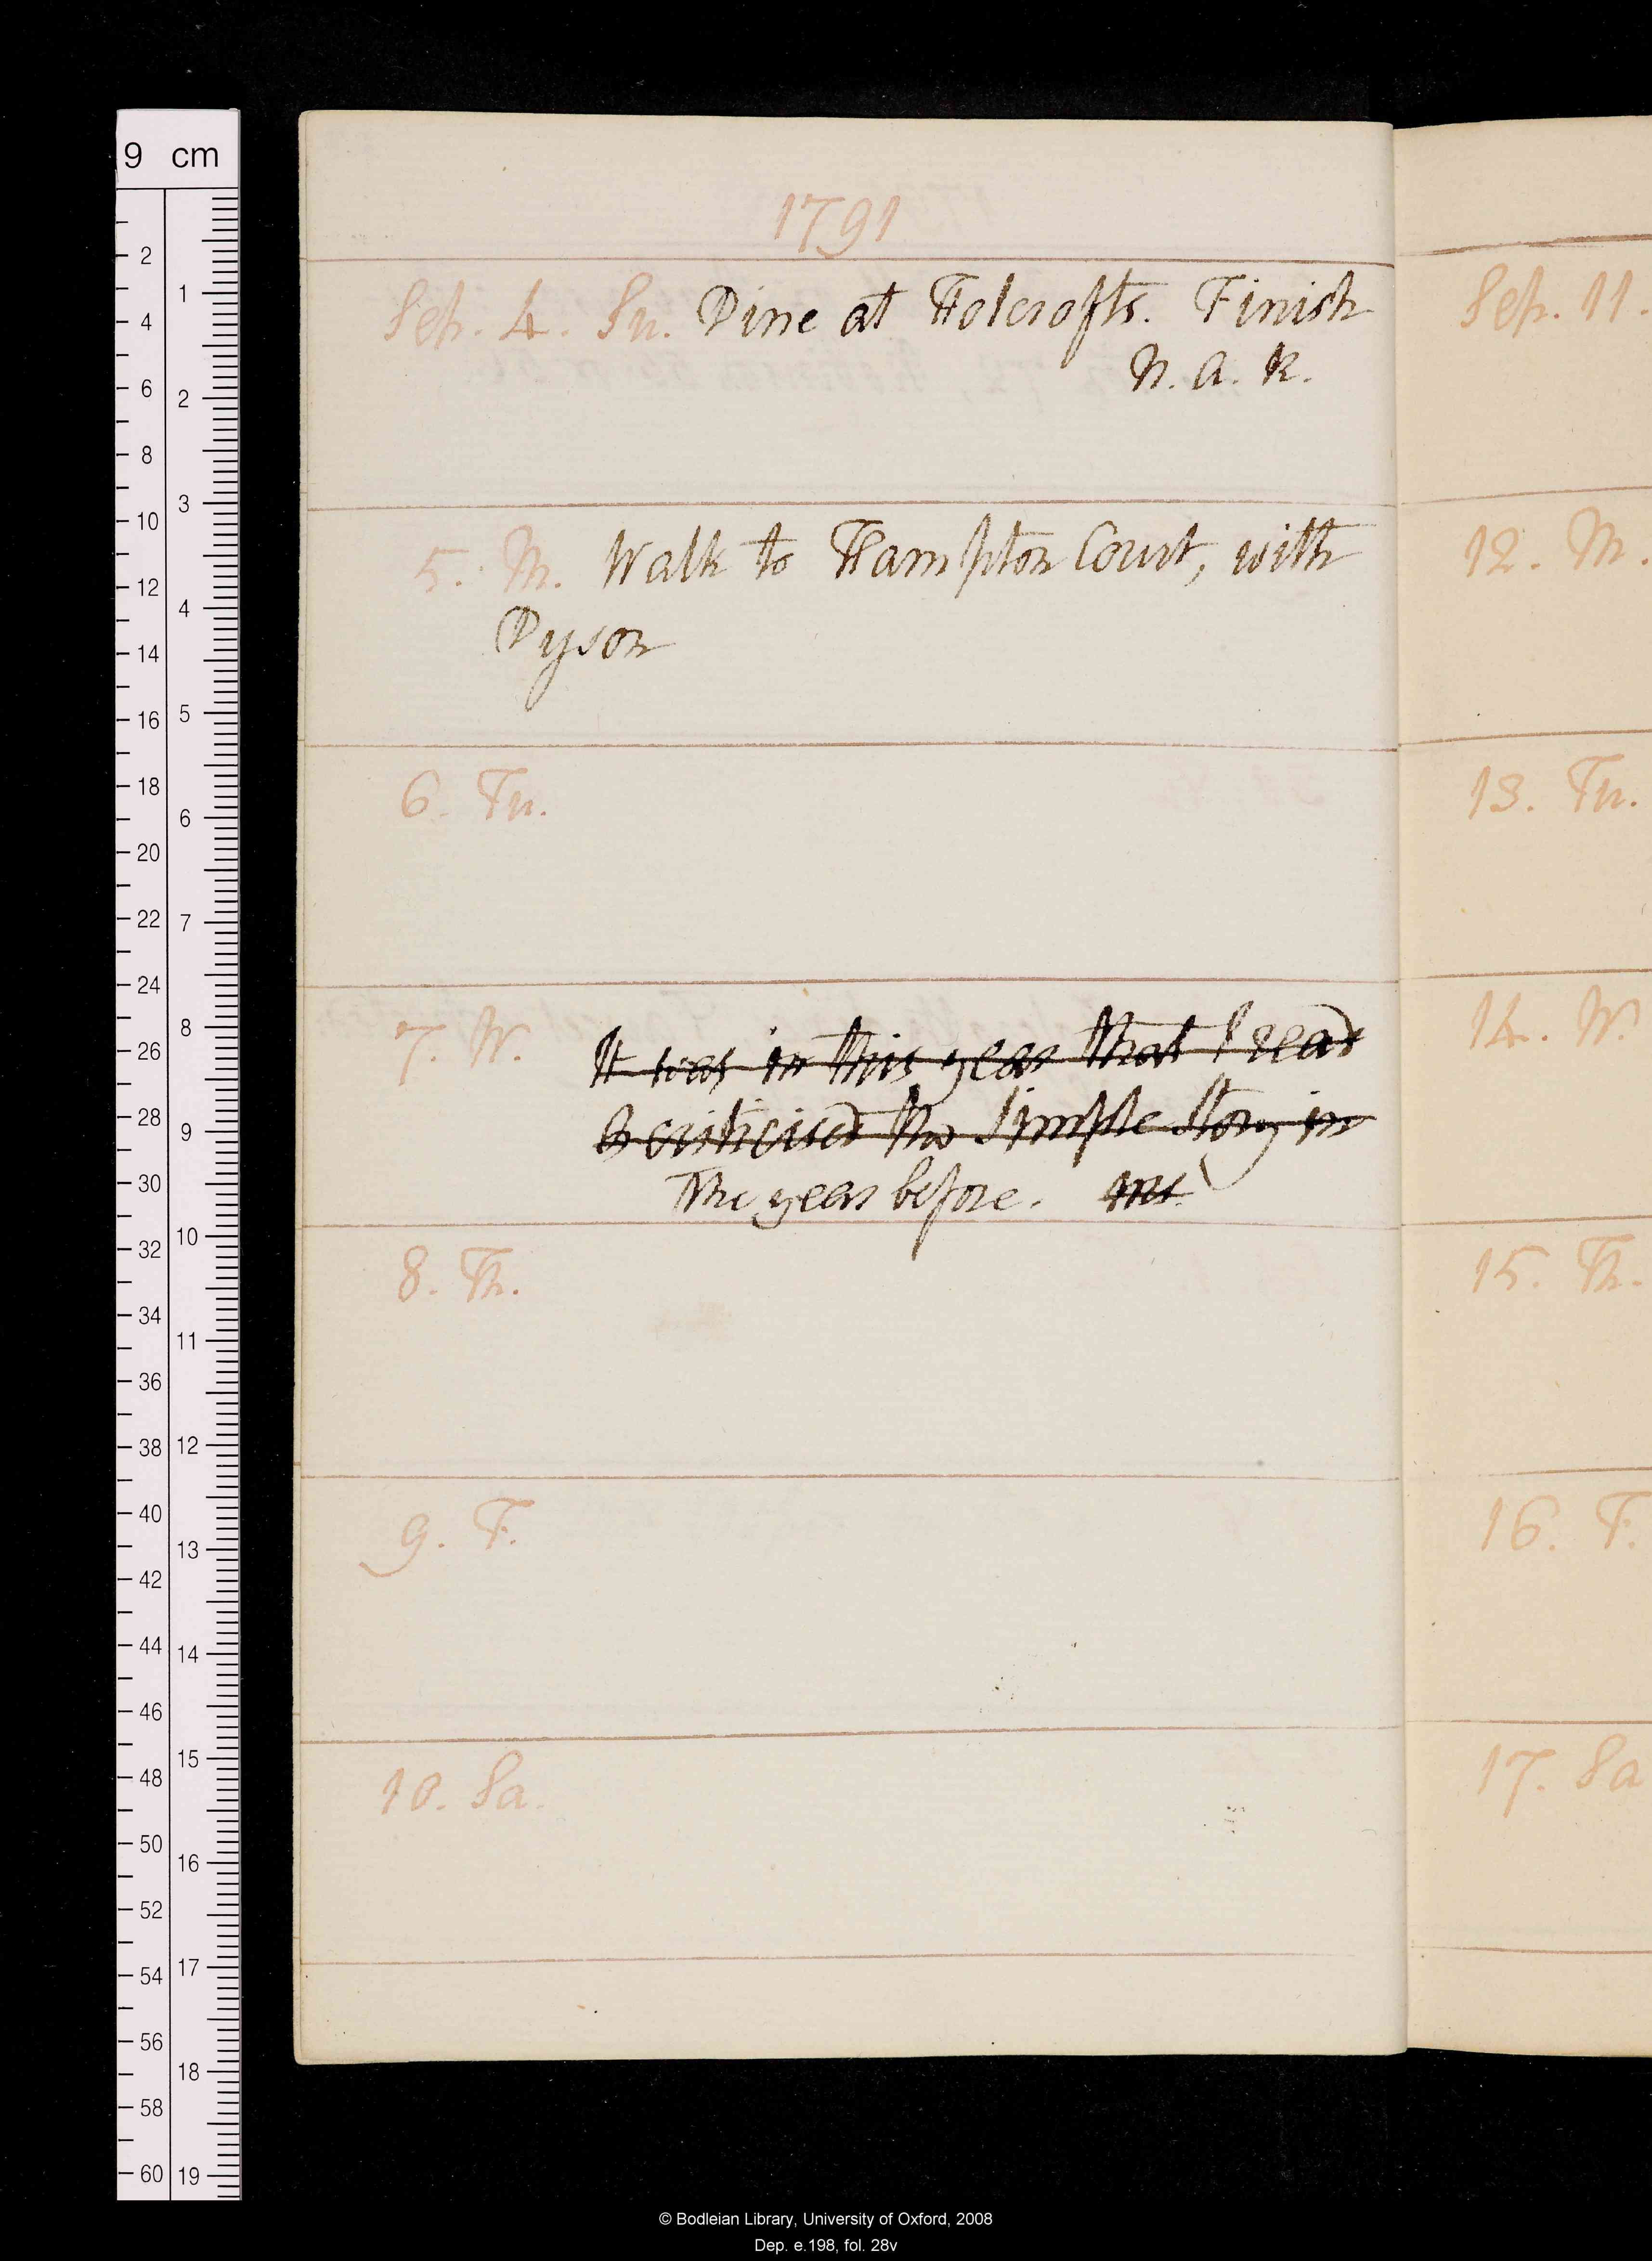 1791
Sep. 4. Su. Dine at Holcrofts. Finish
N. A. R.
5. M. Walk to Hampton Court, with
Dyson
6. Tu.
7. W. It was in this year that I read
& criticised the Simple Story in
The year before. ms.
8. Th.
9. F.
10. Sa.
Sep. 11.
12. M.
13. Tu.
14. W.
15. Th.
16. F.
17. Sa
9 cm
2
4
6
8
10
12
14
16
18
20
22
24
26
28
30
32
34
36
38
40
42
44
46
48
50
52
54
56
58
60
1
2
3
4
5
6
7
8
9
10
11
12
13
14
15
16
17
18
19
© Bodleian Library, University of Oxford, 2008
Dep. e.198, fol. 28v